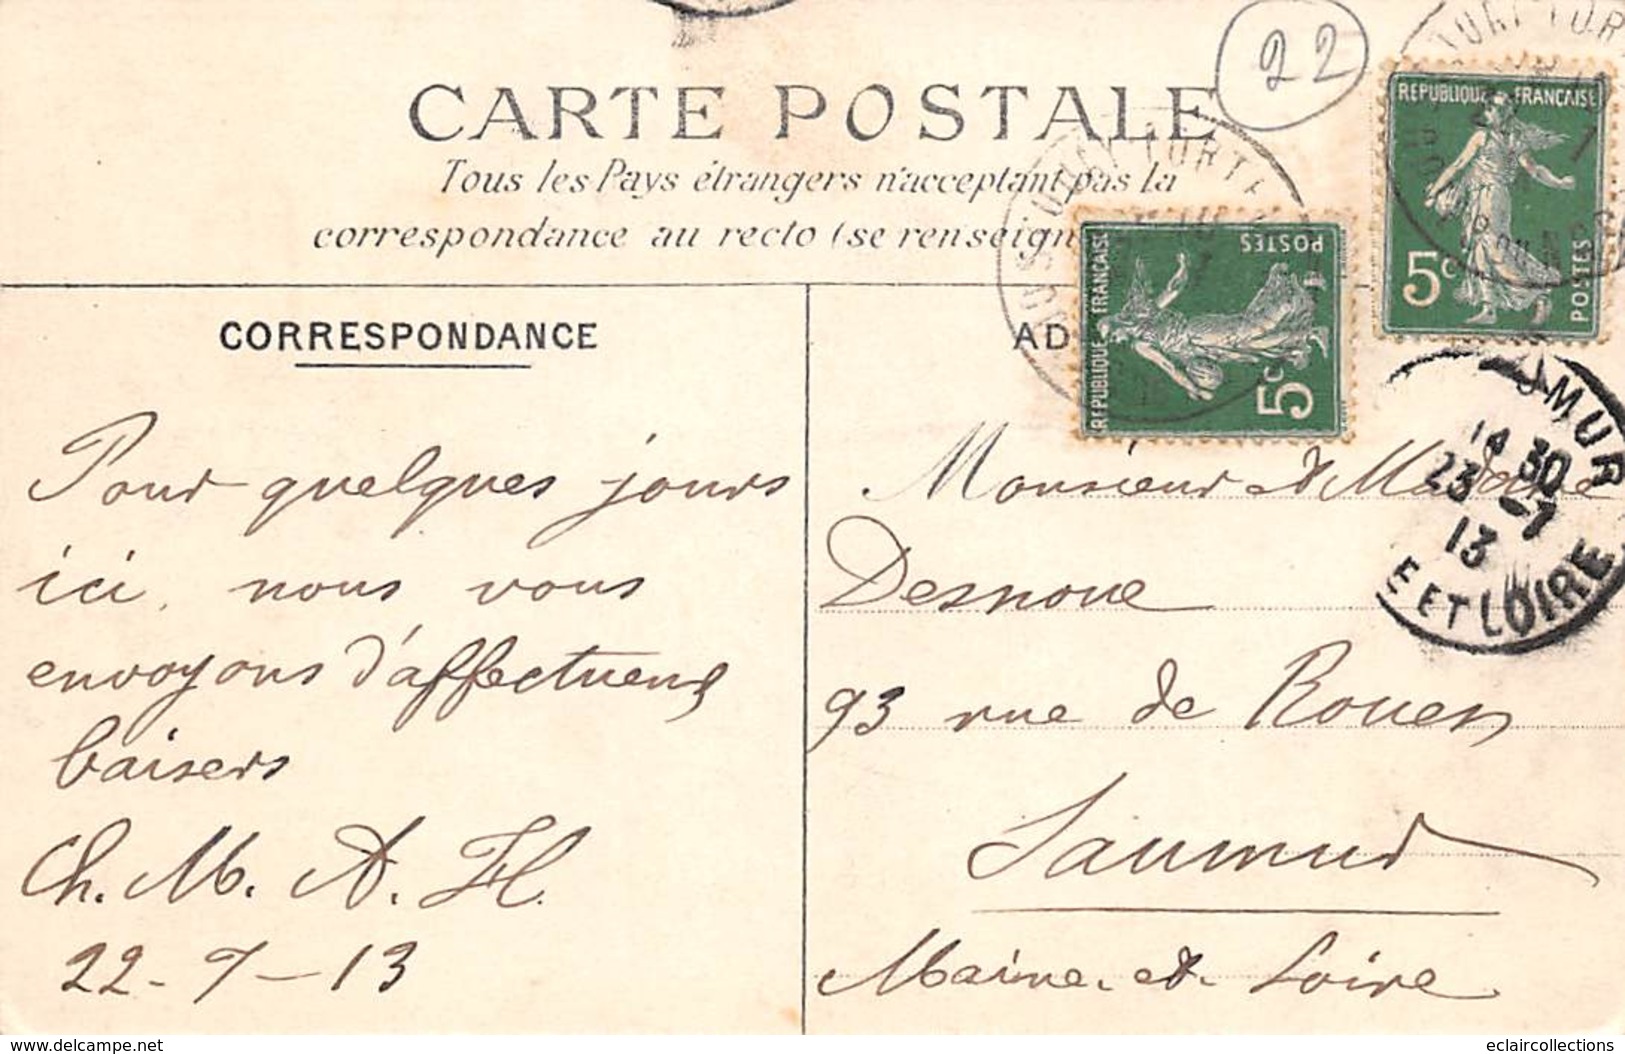 22
CARTE POSTALE
Tous les Pays étrangers n'acceptant pas la
correspondance au recto (se renseign
RÉPUBLIQUE FRANÇAISE
5c
POSTES
RÉPUBLIQUE FRANÇAISE
5c
POSTES
UMUR
14 30
23 -7
13
E ET LOIRE
CORRESPONDANCE
AD
Pour quelques jours
ici, nous vous
envoyons d'affectueux
baisers
Ch. M. A. H.
22-7-13
Monsieur et Madame
Desnoue
93 rue de Rouen
Saumur
Maine-et-Loire
www.delcampe.net
eclaircollections